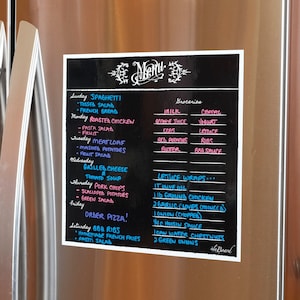 Menu
Sunday SPAGHETTI
- TOSSED SALAD
- FRENCH BREAD
Monday ROASTED CHICKEN
- PASTA SALAD
- FRUIT
Tuesday MEATLOAF
- MASHED POTATOES
- FRUIT SALAD
Wednesday
GRILLED CHEESE
TOMATO SOUP
Thursday PORK CHOPS
- SCALLOPED POTATOES
- GREEN SALAD
Friday
ORDER PIZZA!
Saturday BBQ RIBS
- HOMEMADE FRENCH FRIES
- PASTA SALAD
Groceries
MILK CEREAL
ORANGE JUICE YOGURT
EGGS LETTUCE
RED POTATOES RIBS
BUTTER BBQ SAUCE
LETTUCE WRAPS...
1 lb GROUND CHICKEN
1 ONION (CHOPPED)
2 GREEN ONIONS